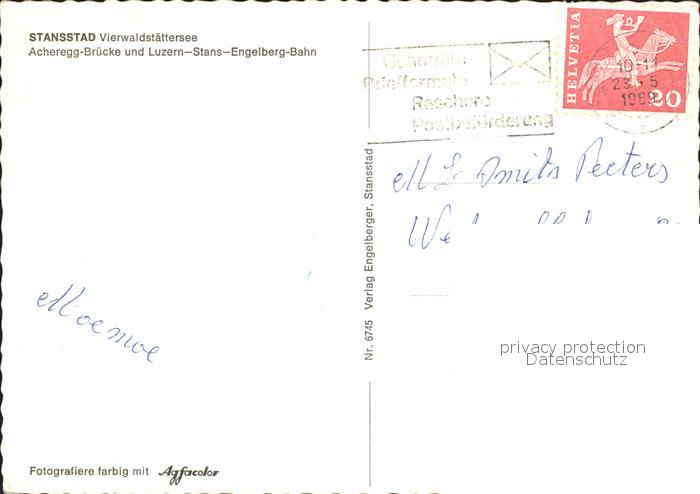 STANSSTAD Vierwaldstättersee
Acheregg-Brücke und Luzern–Stans–Engelberg-Bahn
Genormte
Briefformate
Raschere
Postbeförderung
HELVETIA
10-11
23. 5
1969
20
Smits Peeters
We
Moemoe
Nr. 6745 Verlag Engelberger, Stansstad
privacy protection
Datenschutz
Fotografiere farbig mit Agfacolor